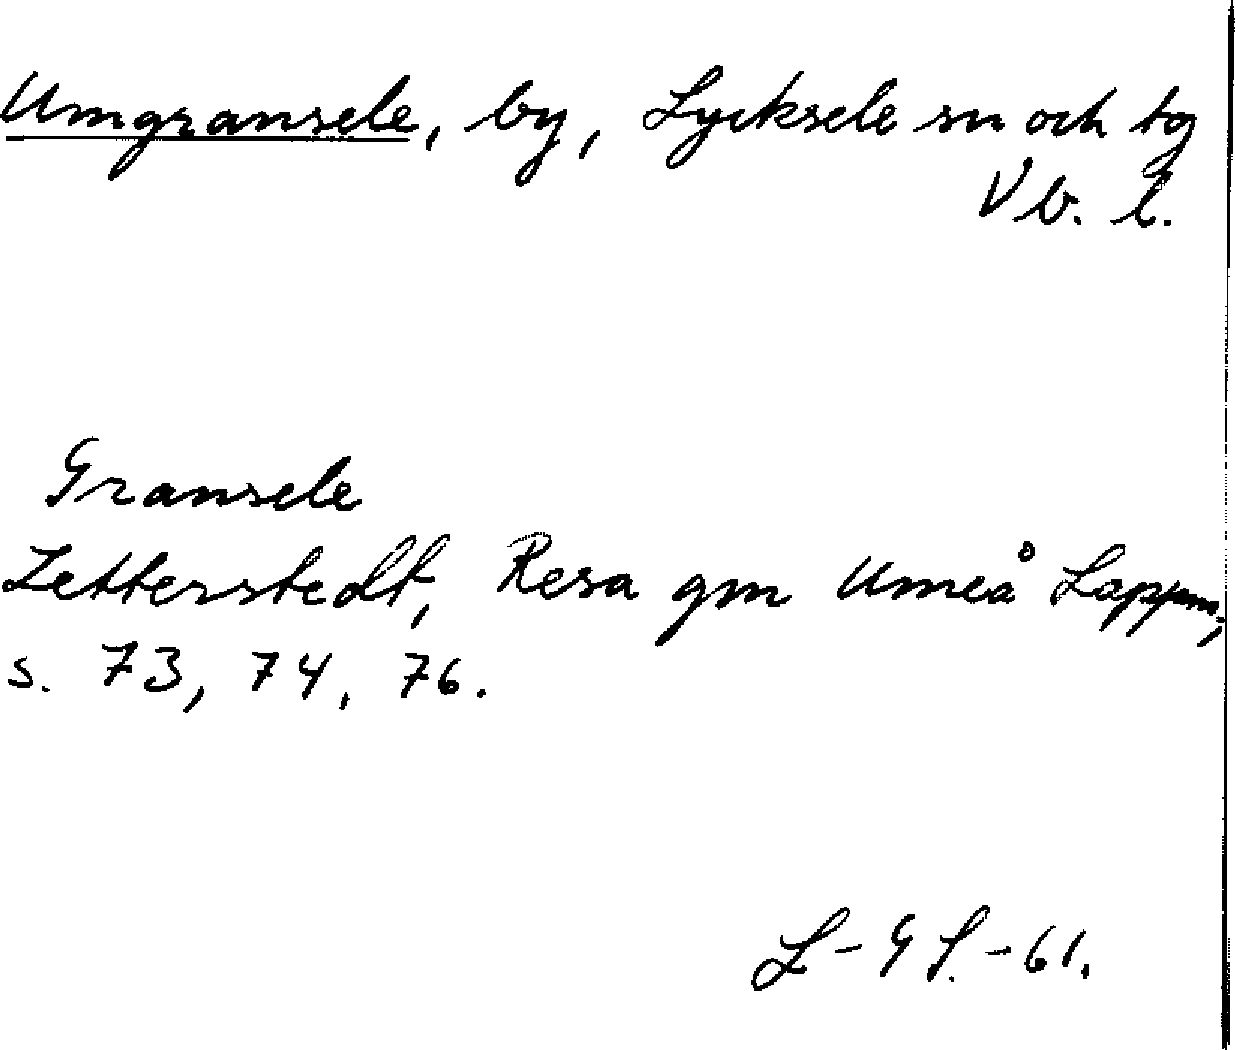 Umgransele, by, Lycksele sn och tg
Vb. l.
Gransele
Zetterstedt, Resa gm Umeå Lappm,
s. 73, 74, 76.
L-G L.-61.